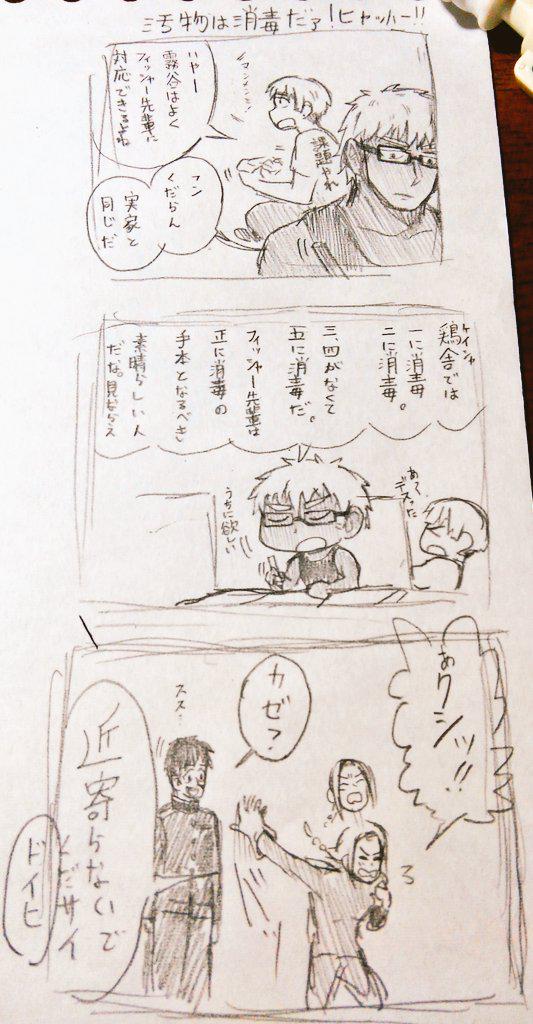 汚物は消毒だァ!ヒャッハー!!
いやー
霧谷はよく
フィッシャー先輩に
対応できるよね
課題やれ
マン
くだらん
実家と
同じだ
ケイシャ
鶏舎では
一に消毒。
二に消毒。
三、四がなくて
五に消毒だ。
フィッシャー先輩は
正に消毒の
手本となるべき
素晴らしい人
だな。見ならえ
あ、
デスった
うちに欲しい
あクシッ!!
カゼ?
スス…
近寄らないで
くだサイ
ドイヒ